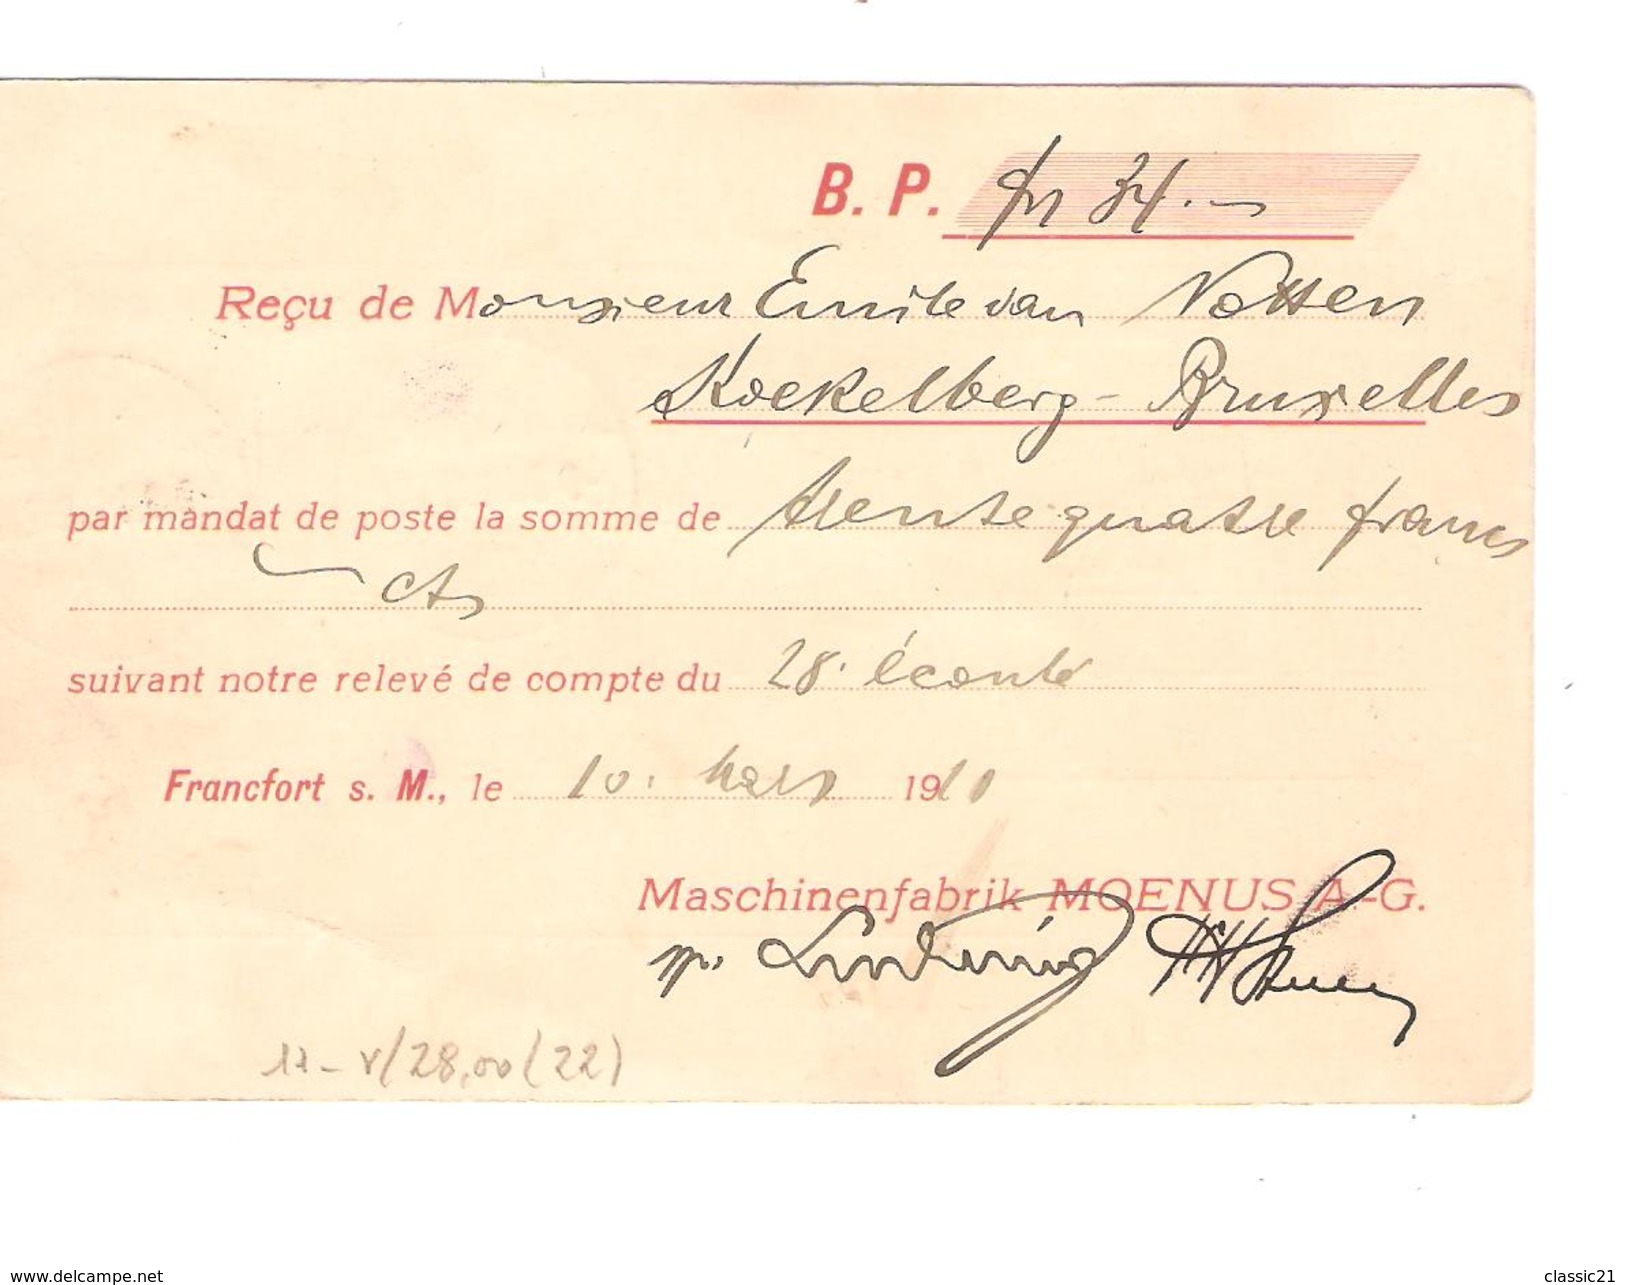 B. P. frs 34.—
Reçu de Monsieur Emile van Notten
Koekelberg - Bruxelles
par mandat de poste la somme de trente quatre francs
— cts
suivant notre relevé de compte du 28. écoulé
Francfort s. M., le 10. Mars 1910
Maschinenfabrik MOENUS A.-G.
pp. Ludwig
17 - V/28,00 (22)
www.delcampe.net
classic21